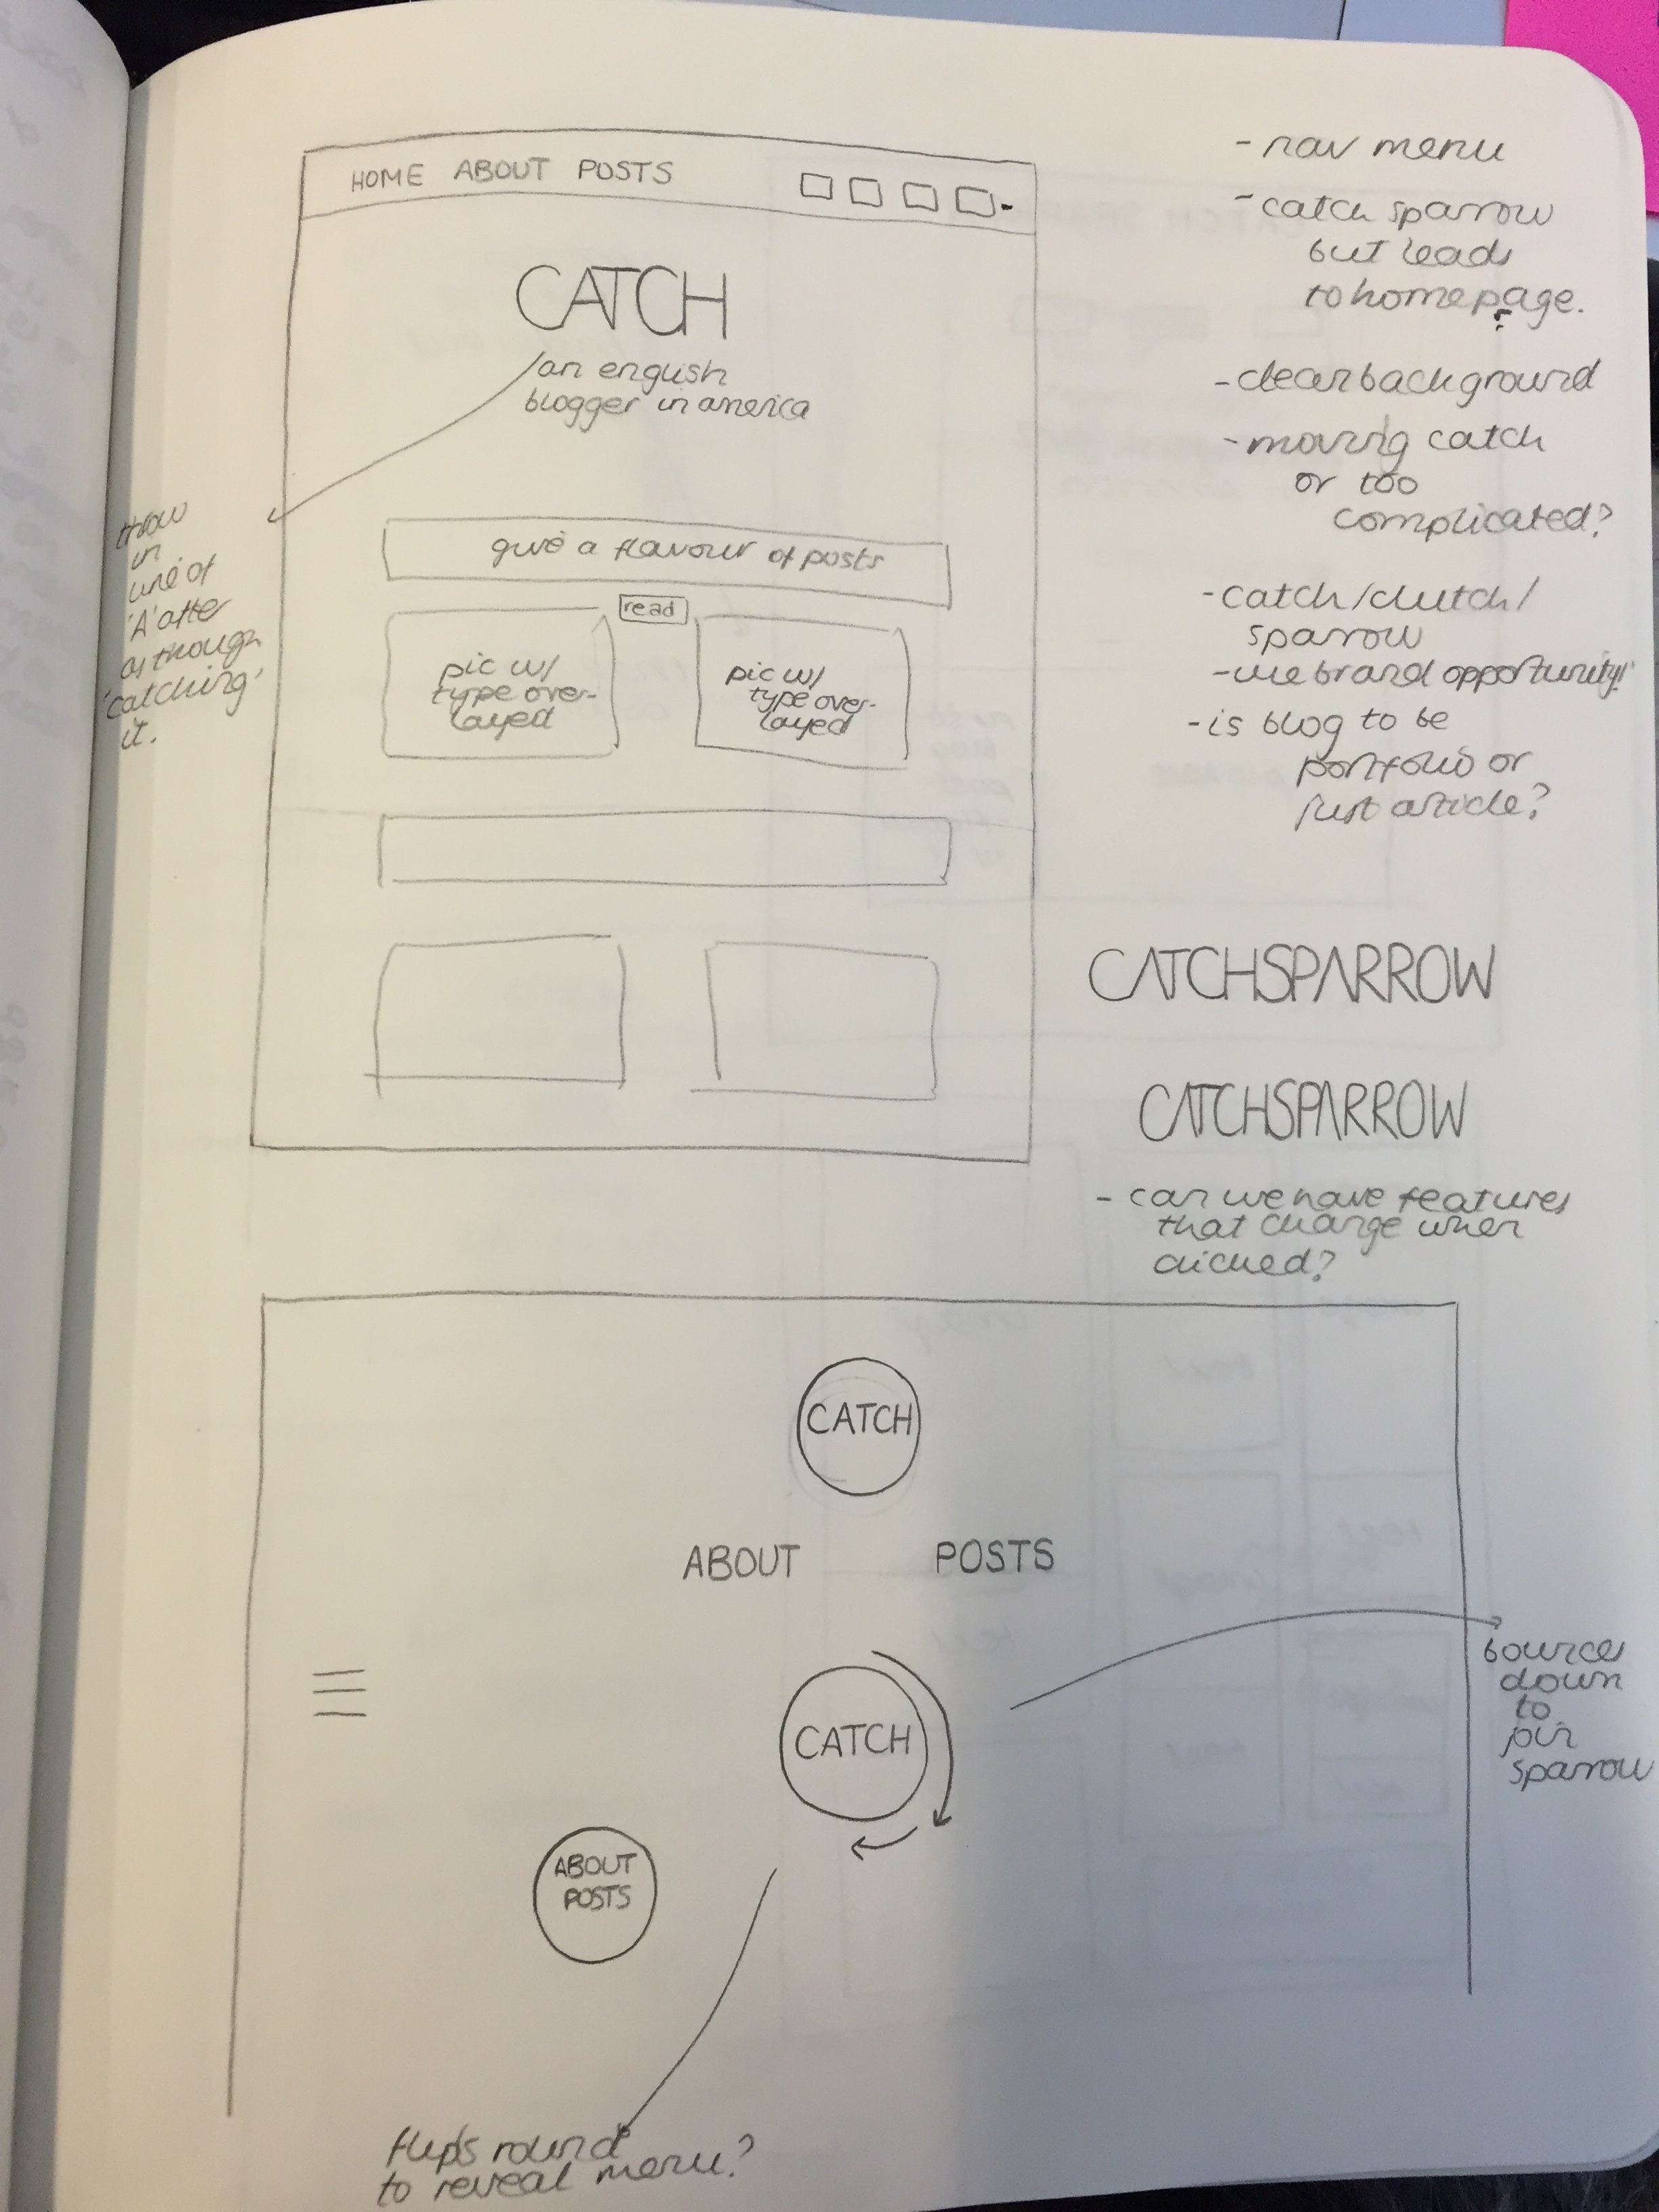 HOME ABOUT POSTS
CATCH
an english
blogger in america
throw
in
line of
'A' after
as though
'catching'
it.
give a flavour of posts
read
pic w/
type over-
layed
pic w/
type over-
layed
- nav menu
- catch sparrow
but leads
to homepage.
- clean background
- moving catch
or too
complicated?
- catch/clutch/
sparrow
- use brand opportunity!
- is blog to be
portfolio or
just article?
CATCHSPARROW
CATCHSPARROW
- can we have features
that change when
clicked?
CATCH
ABOUT POSTS
CATCH
bounces
down
to
join
sparrow
ABOUT
POSTS
flips round
to reveal menu?